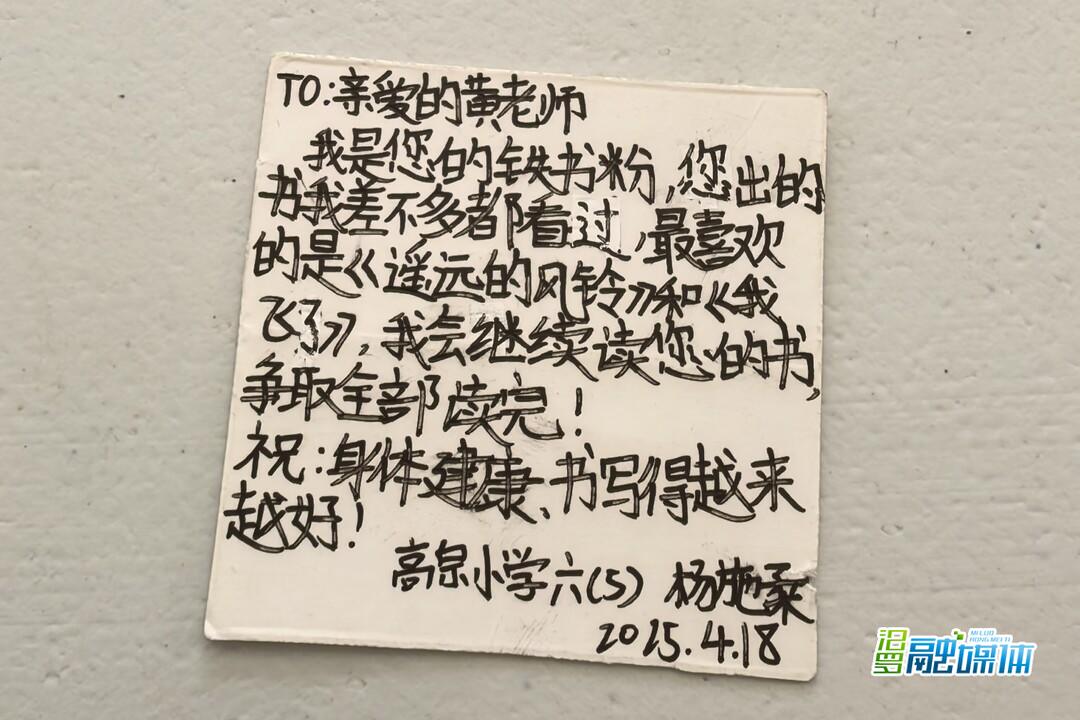 TO:亲爱的黄老师
我是您的铁书粉,您出的
书我差不多都看过,最喜欢
的是《遥远的风铃》和《我
飞了》,我会继续读您的书,
争取全部读完!
祝:身体健康、书写得越来
越好!
高泉小学六(5) 杨施柔
2025.4.18
汨罗融媒体
MI LUO RONG MEI TI